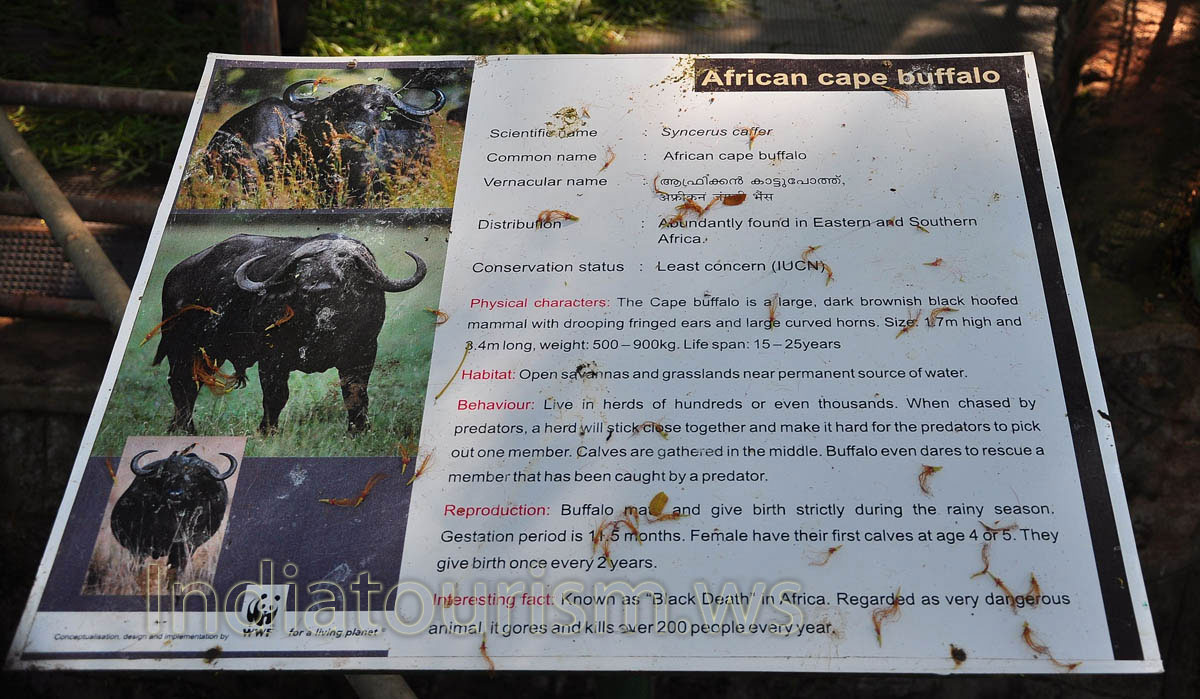 African cape buffalo
Scientific name : Syncerus caffer
Common name : African cape buffalo
Vernacular name : ആഫ്രിക്കൻ കാട്ടുപോത്ത്,
अफ्रीकन जंगली भैंस
Distribution : Abundantly found in Eastern and Southern
Africa.
Conservation status : Least concern (IUCN)
Physical characters: The Cape buffalo is a large, dark brownish black hoofed
mammal with drooping fringed ears and large curved horns. Size: 1.7m high and
3.4m long, weight: 500 – 900kg. Life span: 15 – 25years
Habitat: Open savannas and grasslands near permanent source of water.
Behaviour: Live in herds of hundreds or even thousands. When chased by
predators, a herd will stick close together and make it hard for the predators to pick
out one member. Calves are gathered in the middle. Buffalo even dares to rescue a
member that has been caught by a predator.
Reproduction: Buffalo mate and give birth strictly during the rainy season.
Gestation period is 11.5 months. Female have their first calves at age 4 or 5. They
give birth once every 2 years.
Interesting fact: Known as "Black Death" in Africa. Regarded as very dangerous
animal, it gores and kills over 200 people every year.
Conceptualisation, design and implementation by WWF for a living planet®
Indiatourism.ws